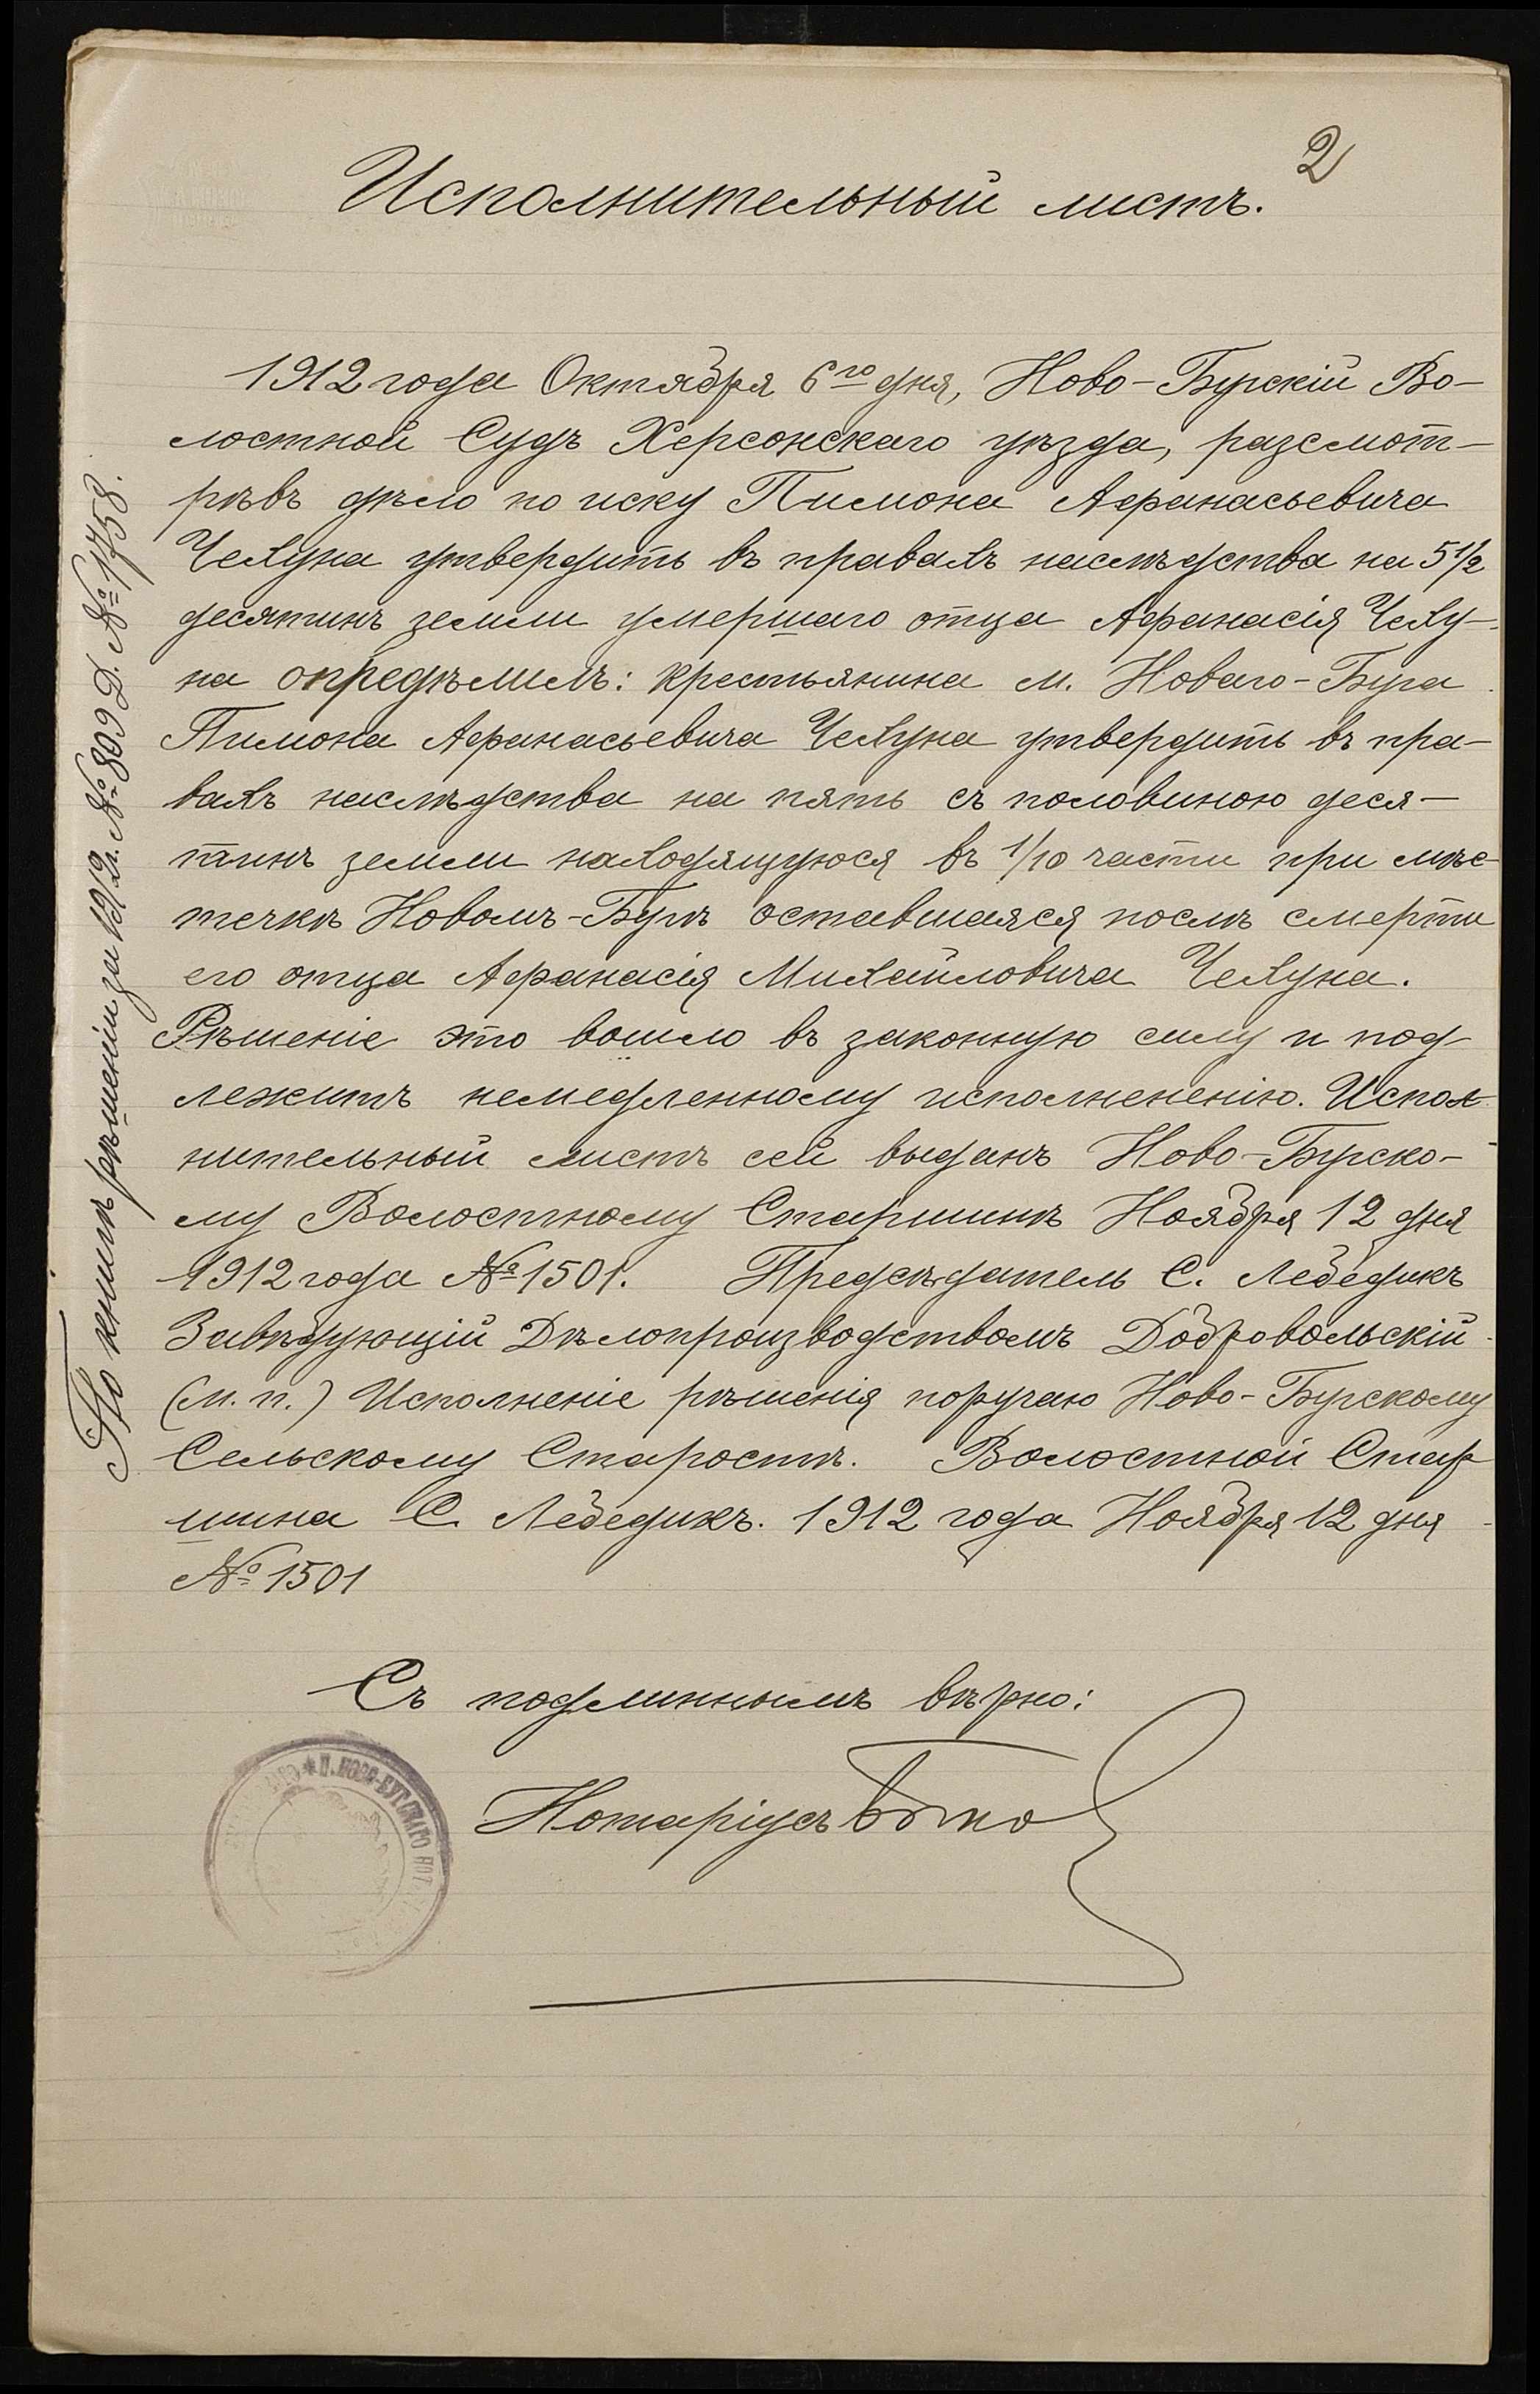 2
Исполнительный листъ.
1912 года Октября 6го дня, Ново-Бугскій Во-
лостной Судъ Херсонскаго уѣзда, разсмот-
рѣвъ дѣло по иску Пимона Афанасьевича
Чехуна утвердить въ правахъ наслѣдства на 5 1/2
десятинъ земли умершаго отца Афанасія Чеху-
на опредѣлилъ: крестьянина м. Новаго-Буга
Пимона Афанасьевича Чехуна утвердить въ пра-
вахъ наслѣдства на пять съ половиною деся-
тинъ земли находящуюся въ 1/10 части при мѣс-
течкѣ Новомъ-Бугѣ оставшаяся послѣ смерти
его отца Афанасія Михайловича Чехуна.
Рѣшеніе это вошло въ законную силу и под-
лежитъ немедленному исполнененію. Испол-
нительный листъ сей выданъ Ново-Бугско-
му Волостному Старшинѣ Ноября 12 дня
1912 года № 1501. Предсѣдатель С. Лебедикъ
Завѣдующій Дѣлопроизводствомъ Добровольскій
(м. п.) Исполненіе рѣшенія поручаю Ново-Бугскому
Сельскому Старостѣ. Волостной Стар
шина С. Лебедикъ. 1912 года Ноября 12 дня
№ 1501
Съ подлиннымъ вѣрно:
Нотаріусъ
НОВО-БУГСКАГО НОТ
По книгѣ рѣшеній за 1912 г. № 809 Д. № 1758.